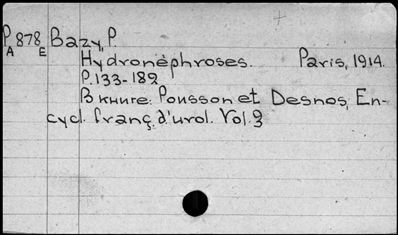 P 878 Bazy, P.
A E
Hydronéphroses. Paris, 1914.
P. 133-182
В книге: Pousson et Desnos, En-
cycl. franç. d'urol. Vol. 3